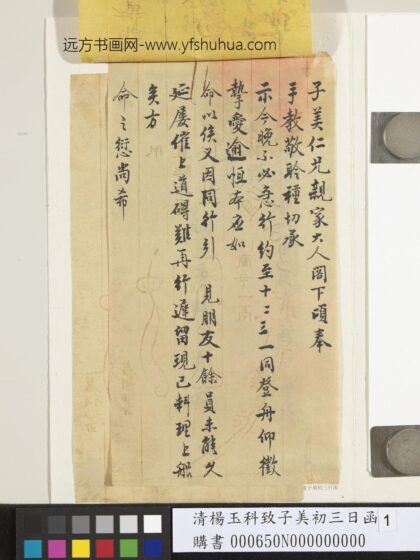 远方书画网-www.yfshuhua.com
子美仁兄親家大人閣下頃奉
手教敬聆種切承
示今晚不必急行約至十二三一同登舟仰徵
摯愛逾恒本應如
命以俟又因同行引 見朋友十餘員未能久
延屢催上道碍難再行遲留現已料理上船
矣方
命之愆尚希
清楊玉科致子美初三日函 1
購書 000650N000000000